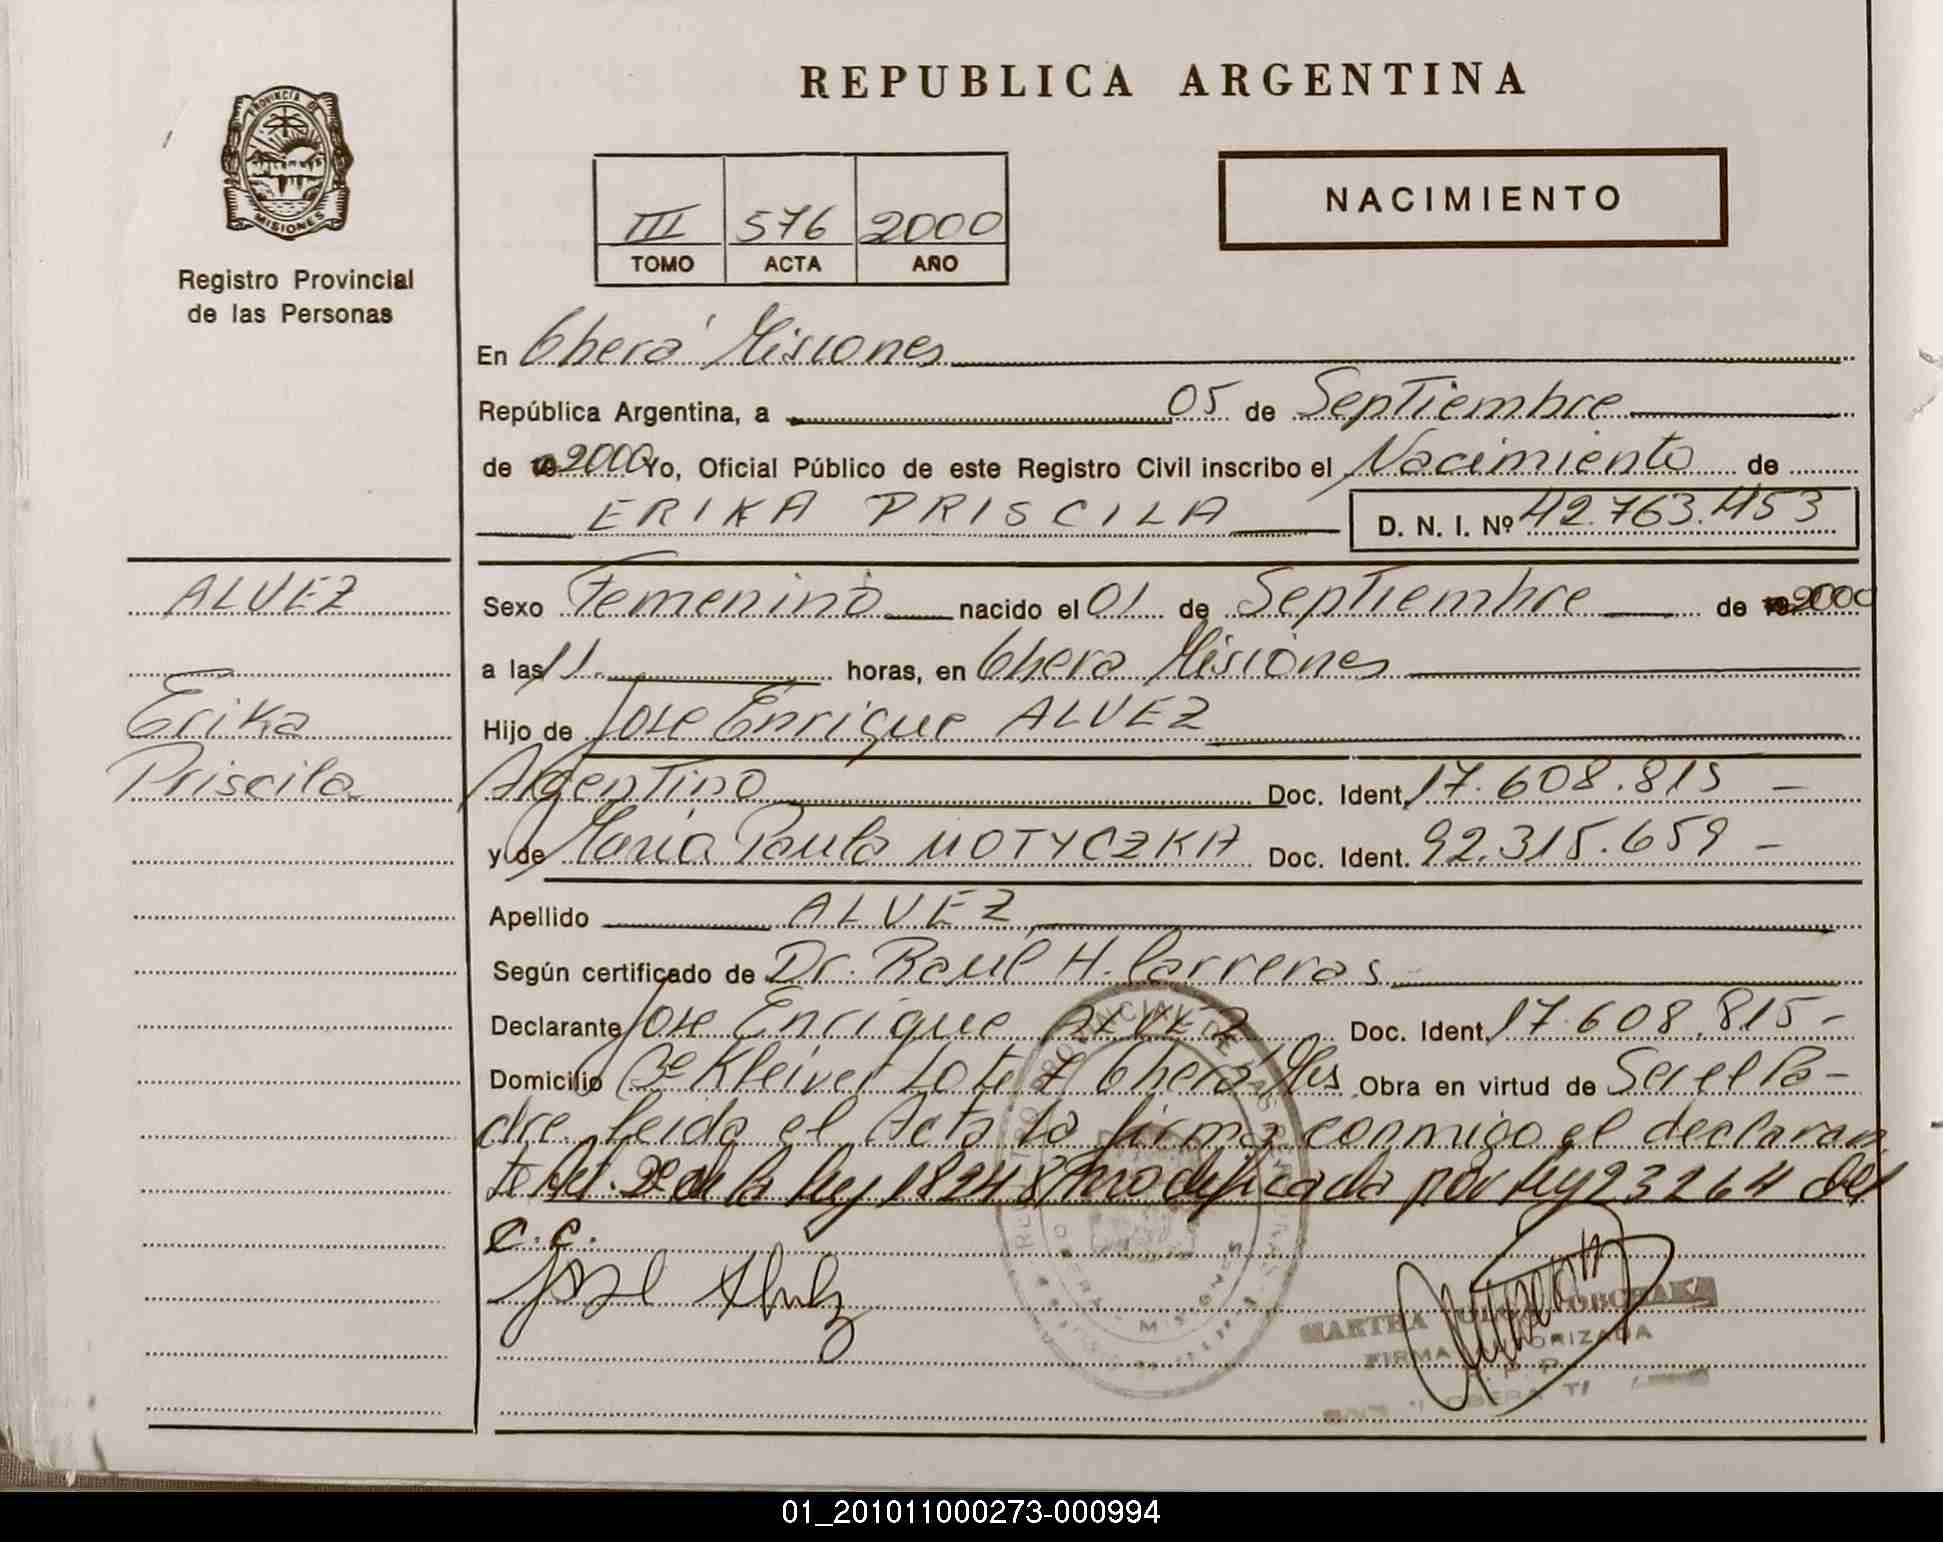 PROVINCIA DE
MISIONES
Registro Provincial
de las Personas
ALVEZ
Erika
Priscila
REPUBLICA ARGENTINA
III 576 2000
TOMO ACTA AÑO
NACIMIENTO
En Oberá Misiones
República Argentina, a 05 de Septiembre
de 2000 Yo, Oficial Público de este Registro Civil inscribo el Nacimiento de
ERIKA PRISCILA D. N. I. Nº 42.763.453
Sexo Femenino nacido el 01 de Septiembre de 2000
a las 11. horas, en Oberá Misiones
Hijo de Jose Enrique ALVEZ
Argentino Doc. Ident. 17.608.815 -
y de Maria Paula MOTYCZKA Doc. Ident. 92.315.659 -
Apellido ALVEZ
Según certificado de Dr. Raul H. Carreras
Declarante Jose Enrique ALVEZ Doc. Ident. 17.608.815-
Domicilio Lote Oberá Mes Obra en virtud de Ser el Pa-
dre. leida el Acta la firma conmigo el declaran
te Art. 2º de la ley 18248 modificada por ley 23264 del
C.C.
MARTHA
FIRMA AUTORIZADA
01_201011000273-000994